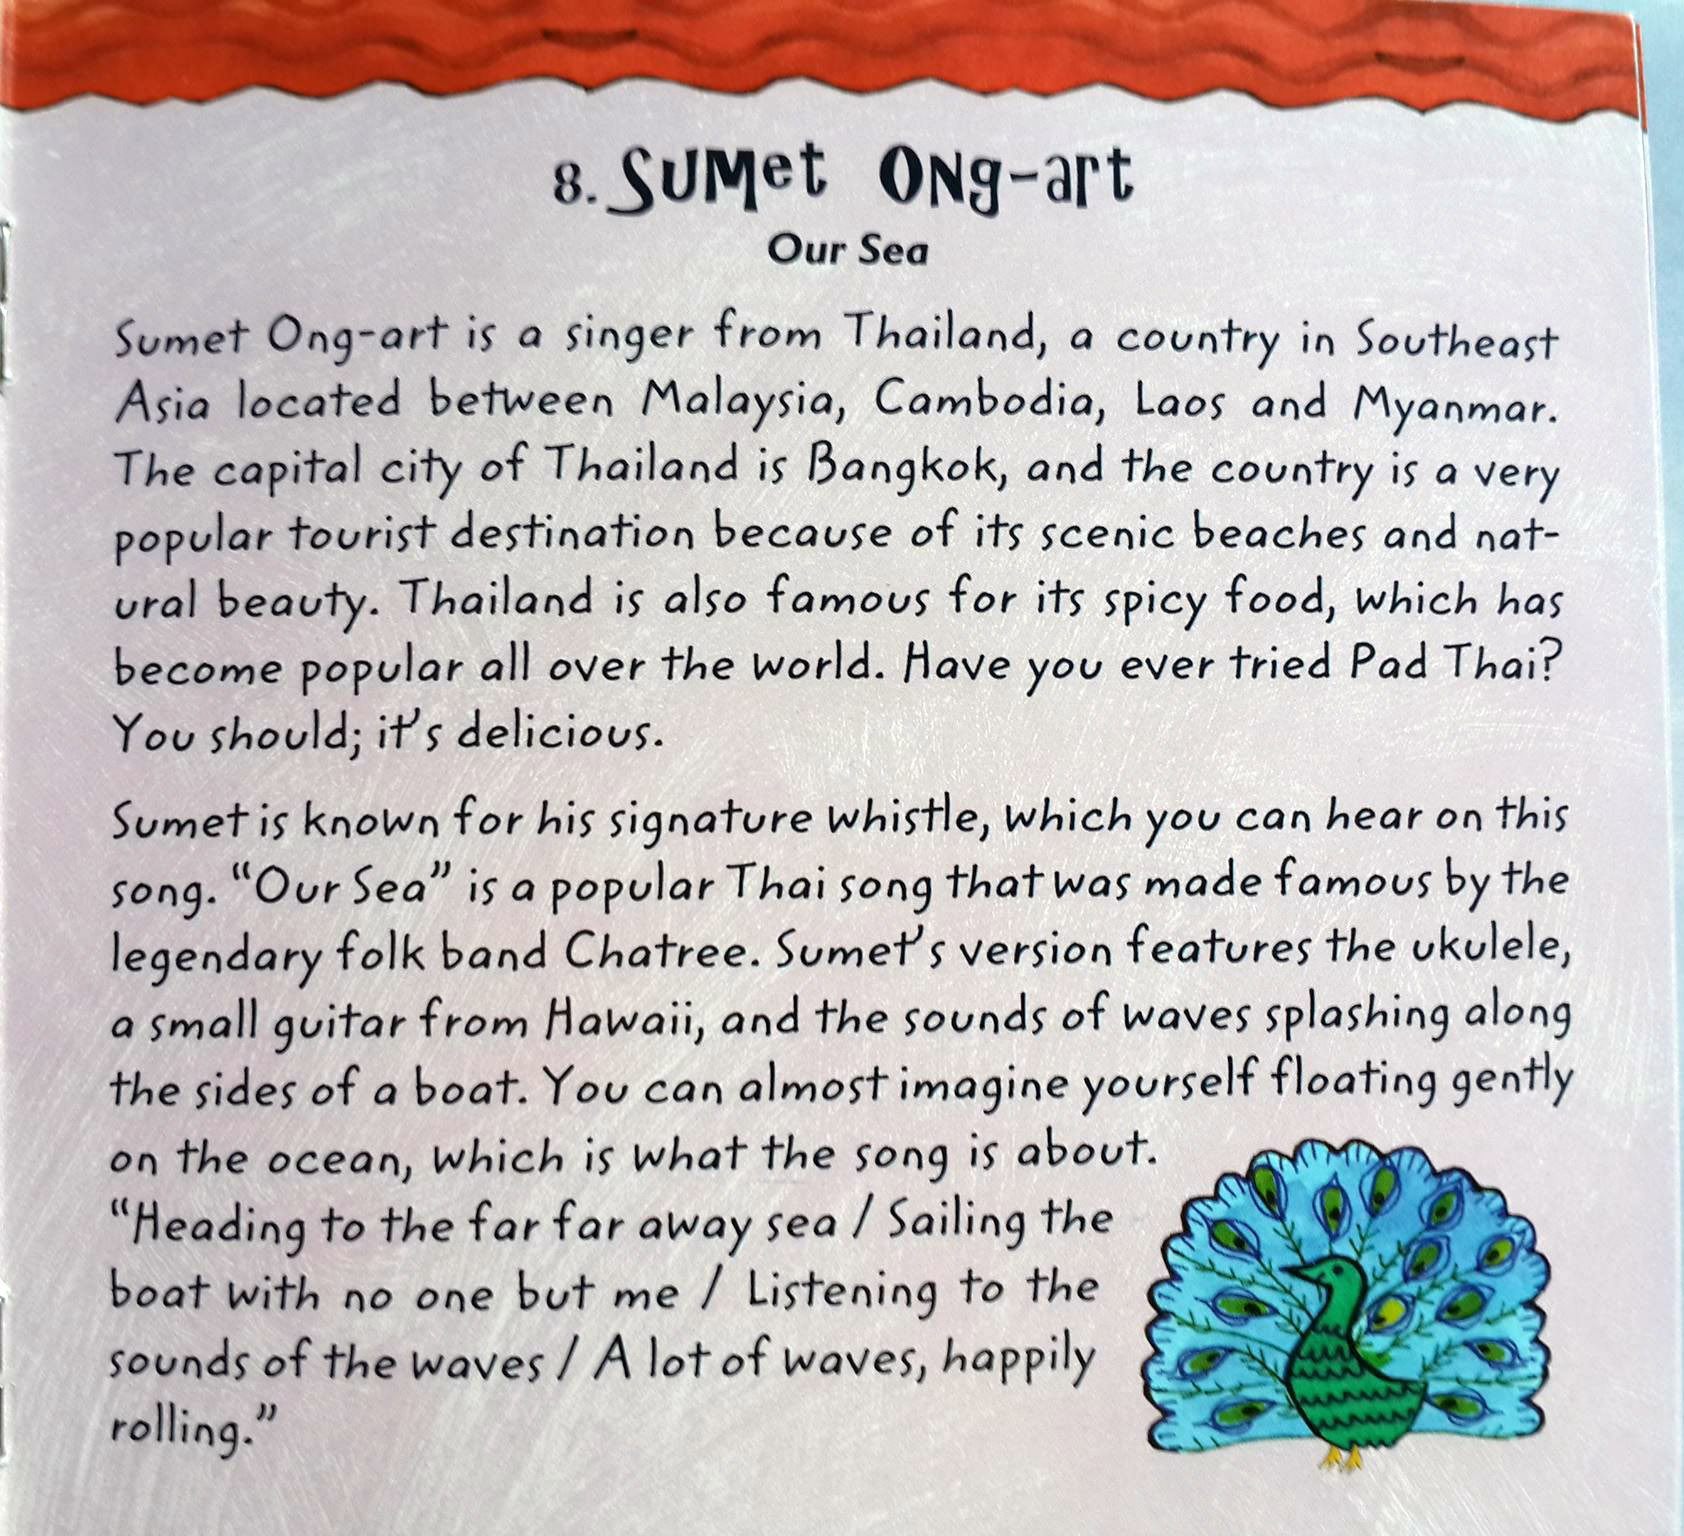 8. Sumet Ong-art
Our Sea
Sumet Ong-art is a singer from Thailand, a country in Southeast
Asia located between Malaysia, Cambodia, Laos and Myanmar.
The capital city of Thailand is Bangkok, and the country is a very
popular tourist destination because of its scenic beaches and nat-
ural beauty. Thailand is also famous for its spicy food, which has
become popular all over the world. Have you ever tried Pad Thai?
You should; it's delicious.
Sumet is known for his signature whistle, which you can hear on this
song. “Our Sea” is a popular Thai song that was made famous by the
legendary folk band Chatree. Sumet's version features the ukulele,
a small guitar from Hawaii, and the sounds of waves splashing along
the sides of a boat. You can almost imagine yourself floating gently
on the ocean, which is what the song is about.
“Heading to the far far away sea / Sailing the
boat with no one but me / Listening to the
sounds of the waves / A lot of waves, happily
rolling.”